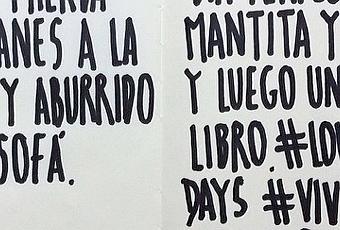 ANES A LA
Y ABURRIDO
SOFÁ.
MANTITA Y
Y LUEGO UN
LIBRO. #LOV
DAYS #VIV